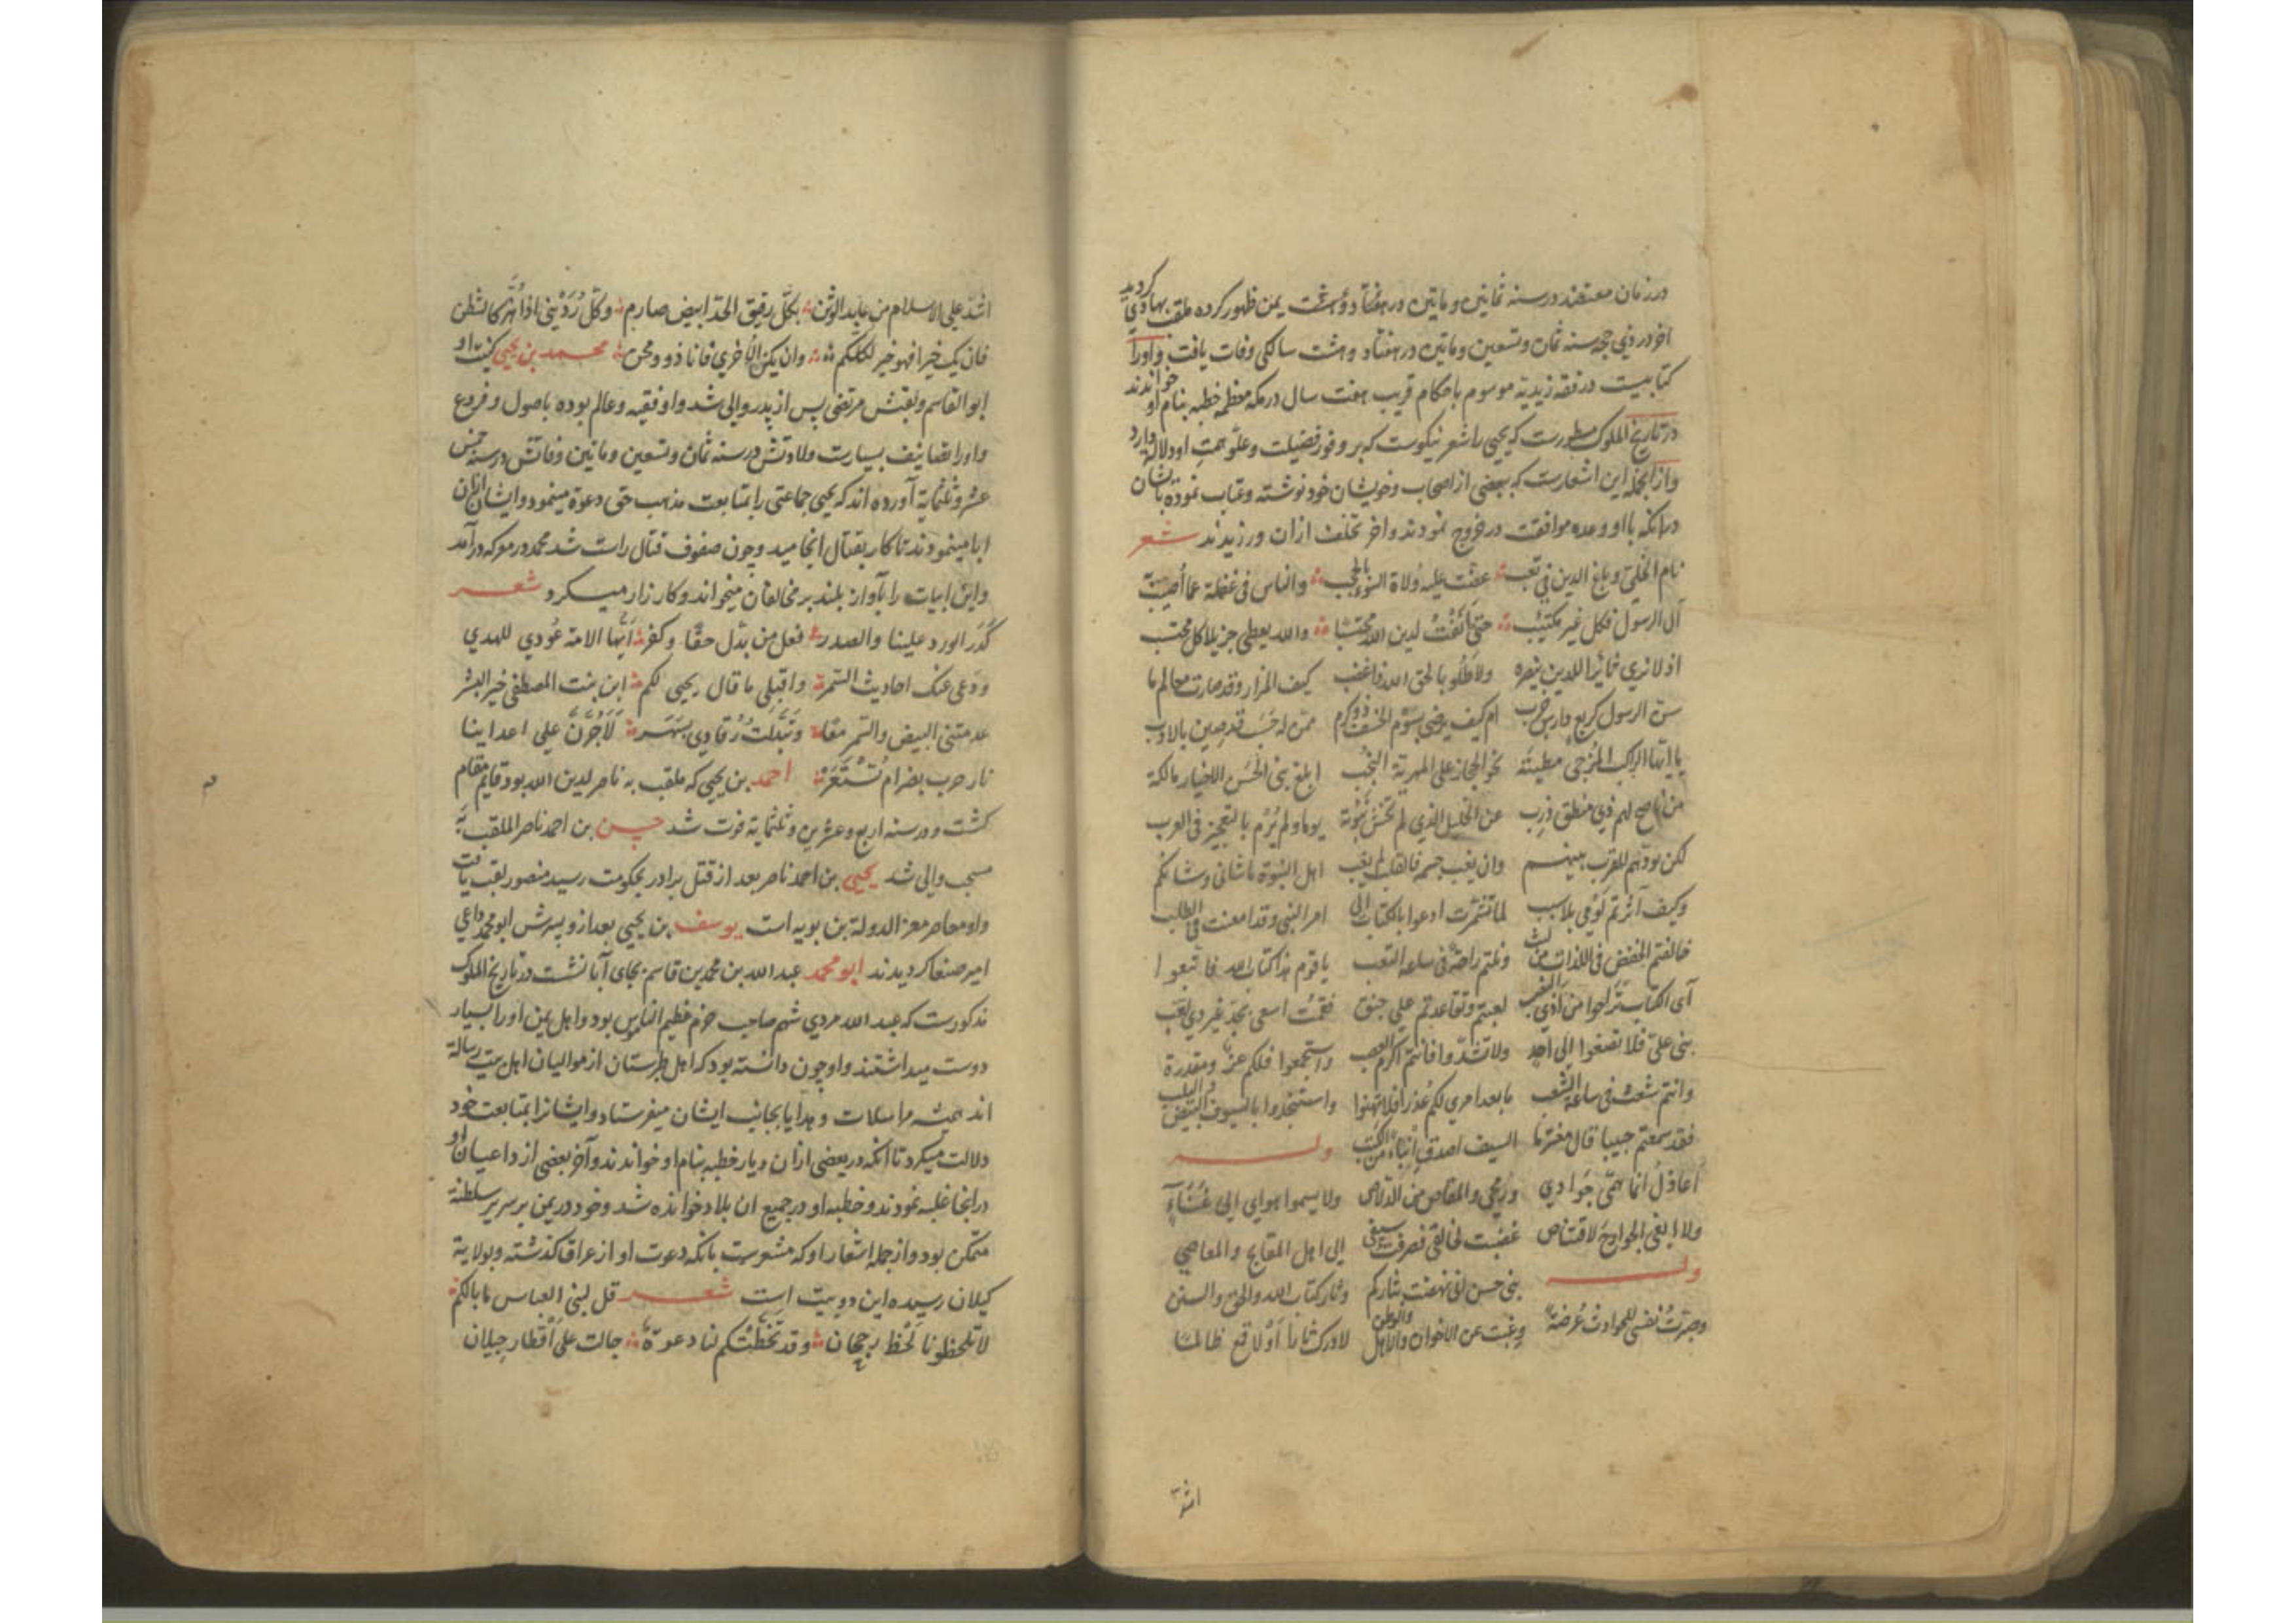 در زمان معتضد در سنه ثمانین و ماتین در هفتاد و هشت یمن ظهور کرده ملقب بهادی گردید
اخر در ذی حجه سنه ثمان و تسعین و ماتین در هفتاد و هشت سالکی وفات یافت و او را
کتابیست در فقه زیدیه موسوم باحکام قریب هفت سال در مکه معظمه خطبه بنام او خواندند
در تاریخ الملوک مسطورست که یحیی را شعر نیکوست که بر وفور فضیلت و علو همت او دلالة دارد
و از انجمله این اشعارست که ببعضی از اصحاب و خویشان خود نوشته و عتاب نموده باشان
درانکه با او وعده موافقت در خروج نمودند و اخر تخلف ازان ورزیدند شعر
نام الخلی و باغ الدین فی تعب عفت علیه ولاة السوء بالحجب والناس فی غفلة عما أصیب
آل الرسول فکل غیر مکتئب حتی لدین الله محتسبا والله یعطی جزیلا کل محتسب
اذ لا نری ثائرا للدین ینصره ولا طلوبا لحق الله ذا غضب کیف المزار وقد صارت معالم ما
سن الرسول کربع دارس خرب ام کیف یرضی بسوم الخسف ذو کرم ممن له حسب قد صین بالادب
یا ایها الراکب المزجی مطیته نحو الحجاز علی المهریة النجب ابلغ بنی الحسن الاخیار مالکة
من ناصح لهم ذی منطق ذرب عن الخلیل الذی لم تخش نبوته یوما ولم یرم بالتعجیز فی العرب
لکن بودتهم للقرب بینهم وان یغب جسمه فالقلب لم یغب اهل النبوة ما شانی وشانکم
وکیف آثرتم لومی بلا سبب لما تشمرت ادعوا بالکتاب الی امر النبی وقد امعنت فی الطلب
خالفتم الخفض فی اللذات من ونلتم راحة فی ساعة التعب یا قوم هذا کتاب الله فاتبعوا
آی الکتاب لعبتم وتقاعدتم علی حنق فقمت اسعی بجد غیر ذی لعب
بنی علی فلا تصغوا الی احد ولا تشدوا فانتم اکرم العرب واستجمعوا فلکم عز ومقدرة
وانتم شعث فی ساعة الشعب ما بعد امری لکم عذر فلا تهنوا واستنجدوا بالسیوف البیض
فقد سمعتم حبیبا قال مفتخرا السیف اصدق انباء من الکتب وله
أعاذل انما همی جوادی ورمحی والمقاص من الدلاص ولا یسموا هوای الی غناء
ولا ابغی الجوارح لاقتناص غضبت لخالقی فصرفت سیفی الی اهل المقابح والمعاصی
وله بنی حسن انی نهضت بثارکم وثار کتاب الله والحق والسنن
وصیرت نفسی للحوادث عرضة وغبت عن الاخوان والاهل والوطن لادرک ثارا او لاقمع ظالما
اشد
اشد علی الاسلام من عابد الوثن بکل رقیق الحد ابیض صارم وکل ردینی اذا اهتز کالشطن
فان یک خیرا فهو خیر لکلکم وان یکن الاخری فانا ذوو محن محمد بن یحیی کنیت او
ابو القاسم و لقبش مرتضی پس از پدر والی شد و او فقیه و عالم بوده باصول و فروع
و او را تصانیف بسیارست ولادتش در سنه ثمان و تسعین و ماتین وفاتش در سنه خمس
عشر و ثلثمایة آورده اند که یحیی جماعتی را بمتابعت مذهب حق دعوة مینمود و ایشان ازان
ابا مینمودند تا کار بقتال انجامید و چون صفوف قتال راست شد محمد در معرکه درآمد
و این ابیات را بآواز بلند بر مخالفان میخواند و کارزار میکرد شعر
کدر الورد علینا والصدر فعل من بدل حقا وکفر ایها الامة عودی للهدی
ودعی عنک احادیث السمر واقبلی ما قال یحیی لکم ابن بنت المصطفی خیر البشر
عدمتنی البیض والسمر معا وتبدلت رقادی بسهر لأجرن علی اعداینا
نار حرب بضرام تستعر احمد بن یحیی که ملقب به ناصر لدین الله بود قایم مقام
کشت و در سنه اربع و عشرین و ثلثمایة فوت شد حسن بن احمد ناصر الملقب به
والی شد یحیی بن احمد ناصر بعد از قتل برادر بحکومت رسید منصور لقب یافت
و او معاصر معز الدولة بن بویه است یوسف بن یحیی بعد ازو پسرش ابو محمد داعی
امیر صنعا کردیدند ابو محمد عبد الله بن محمد بن قاسم بجای آبا نشست در تاریخ الملوک
مذکورست که عبد الله مردی شهم صاحب حزم عظیم الناموس بود و اهل یمن او را بسیار
دوست میداشتند و او چون دانسته بود که اهل طبرستان از موالیان اهل بیت رسالة
اند همیشه مراسلات و هدایا بجانب ایشان میفرستاد و ایشانرا بمتابعت خود
دلالت میکرد تا آنکه در بعضی ازان دیار خطبه بنام او خواندند و آخر بعضی از داعیان او
درانجا غلبه نمودند و خطبه او در جمیع ان بلاد خوانده شد و خود در یمن بر سریر سلطنة
متمکن بود و از جمله اشعار او که مشعرست بانکه دعوت او از عراق کذشته و بولایة
کیلان رسیده این دو بیت است شعر قل لبنی العباس ما بالکم
لا تلحظونا لحظ رجحان وقد تخطتکم لنا دعوة جالت علی اقطار جیلان